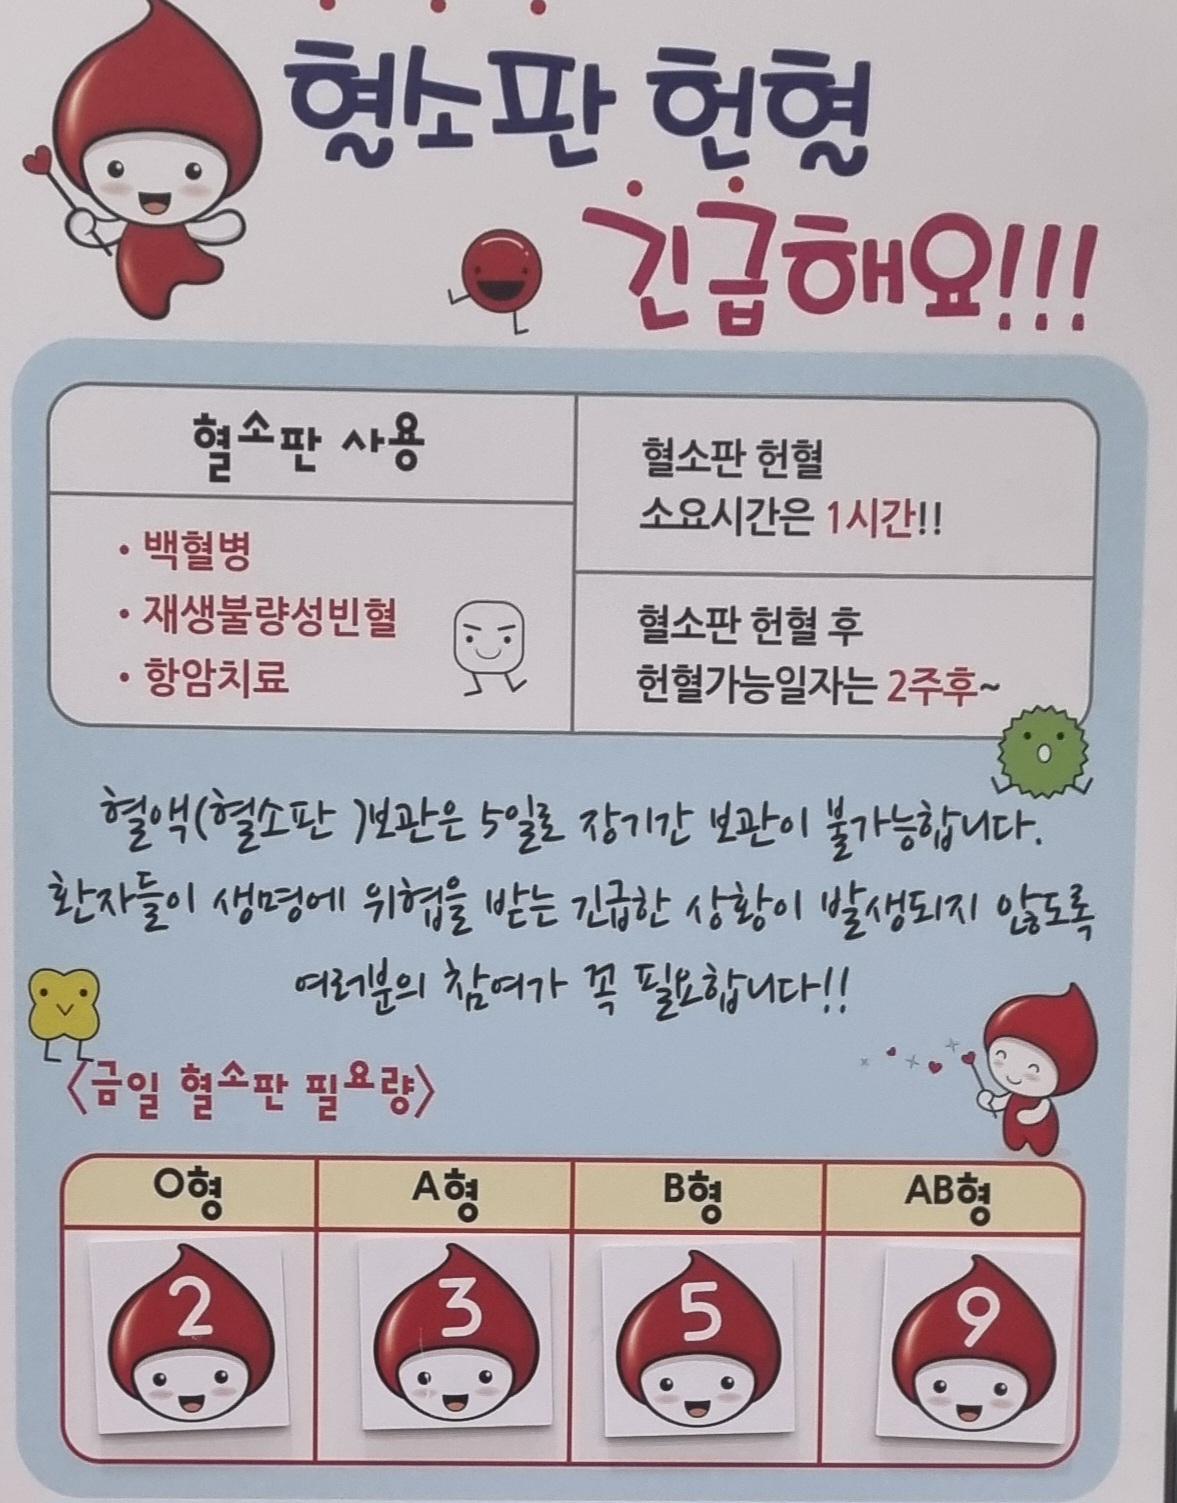 혈소판 헌혈
긴급해요!!!
혈소판 사용
• 백혈병
• 재생불량성빈혈
• 항암치료
혈소판 헌혈
소요시간은 1시간!!
혈소판 헌혈 후
헌혈가능일자는 2주후~
혈액(혈소판 )보관은 5일로 장기간 보관이 불가능합니다.
환자들이 생명에 위협을 받는 긴급한 상황이 발생되지 않도록
여러분의 참여가 꼭 필요합니다!!
<금일 혈소판 필요량>
O형 A형 B형 AB형
2 3 5 9